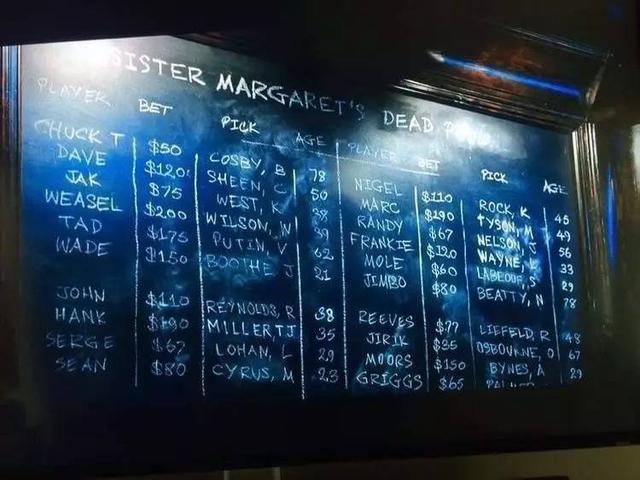 SISTER MARGARET'S DEAD
PLAYER BET PICK AGE
CHUCK T $50 COSBY, B 78
DAVE $120 SHEEN, C 50
JAK $75 WEST, K 38
WEASEL $200 WILSON, W 39
TAD $175 PUTIN, V 62
WADE $150 BOOTHE, J 21
JOHN $110 REYNOLDS, R 38
HANK $190 MILLER, TJ 35
SERGE $67 LOHAN, L 29
SEAN $80 CYRUS, M 23
PLAYER BET PICK AGE
NIGEL $110 ROCK, K 45
MARC $290 TYSON, M 49
RANDY $67 NELSON, J 56
FRANKIE $120 WAYNE, L 33
MOLE $60 LABEOUF, S 29
JIMBO $80 BEATTY, N 78
REEVES $77 LIEFELD, R 48
JIRIK $35 OSBOURNE, O 67
MOORS $150 BYNES, A 29
GRIGGS $65